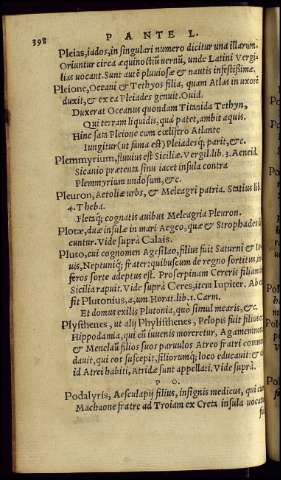 398 P A N T E L.
Pleias, iados, in singulari numero dicitur una illarum.
Oriuntur circa æquinoctiũ vernũ, unde Latini Vergi-
lias vocant. Sunt autẽ pluviosæ & nautis infestissimæ.
Pleione, Oceani & Tethyos filia, quam Atlas in uxorẽ
duxit, & ex ea Pleiades genuit. Ovid.
Duxerat Oceanus quondam Titanida Tethyn,
Qui terram liquidis, quà patet, ambit aquis.
Hinc sata Pleione cum cœlifero Atlante
Iungitur (ut fama est) Pleiadesq; parit, &c.
Plemmyrium, fluvius est Siciliæ. Vergil. lib. 3. Aeneid.
Sicanio prætenta sinu iacet insula contra
Plemmyrium undosum, &c.
Pleuron, Aetoliæ urbs, & Meleagri patria. Statius lib.
4. Theba.
Fletaq; cognatis avibus Meleagria Pleuron.
Plotæ, duæ insulæ in mari Aegeo, quæ & Strophades
cuntur. Vide suprà Calais.
Pluto, cui cognomen Agesilao, filius fuit Saturni &
uis, Neptuniq; frater: quibuscum de regno sortitus, in
feros sorte adeptus est. Proserpinam Cereris filiam
Sicilia rapuit. Vide suprà Ceres, item Iupiter. Ab
fit Plutonius, a, um Horat. lib. 1. Carm.
Et domus exilis Plutonia, quo simul mearis, &c.
Plysthenes, ut alij Phylisthenes, Pelopis fuit filius
Hippodamia, qui cũ iuvenis moreretur, Agamemnonẽ
& Menelaũ filios suos parvulos Atreo fratri commen
davit, qui eos suscepit, filiorumq; loco educavit: &
id Atrei habiti, Atridæ sunt appellati. Vide suprà.
P O.
Podalyris, Aesculapij filius, insignis medicus, qui cum
Machaone fratre ad Troiam ex Creta insula